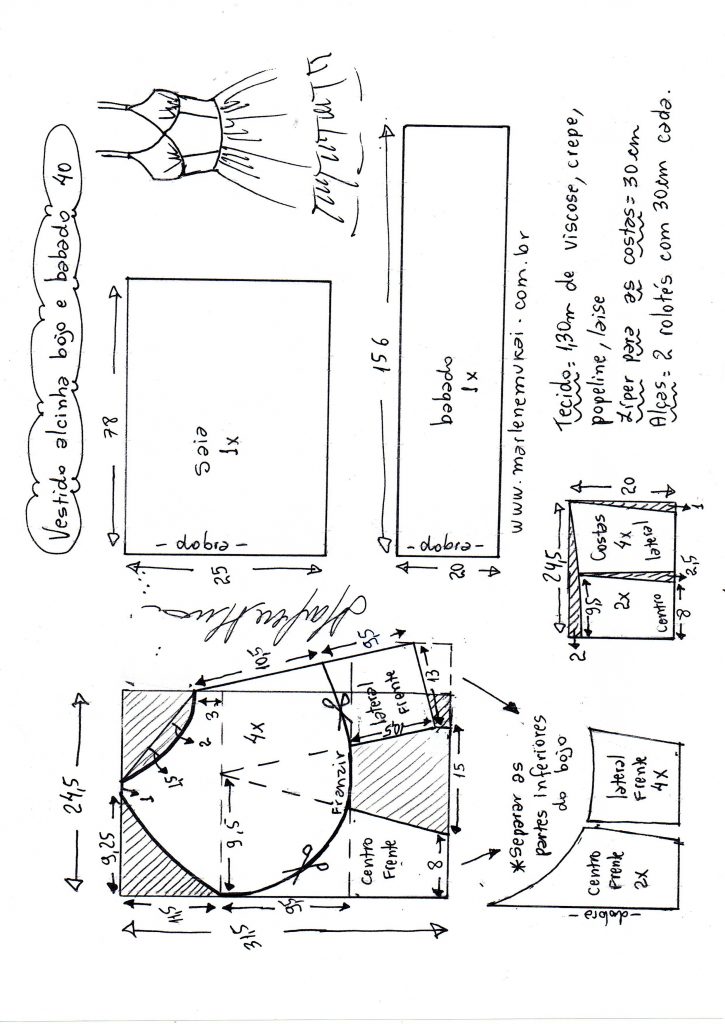 Vestido alcinha bojo e babado 40
24,5
9,25
1
1,5
2
3
4x
11,5
9,5
9,5
31,5
10,5
9,5
Franzir
Centro
Frente
lateral
Frente
10,5
13
8
15
78
saia
1x
-dobra-
25
156
babado
1x
-dobra-
20
www.marlenemukai.com.br
*Separar as
partes inferiores
do bojo
Centro
Frente
2x
-dobra-
lateral
Frente
4x
24,5
2
9,5
2x
centro
8
2,5
Costas
4x
lateral
20
1
Tecido= 1,30m de viscose, crepe,
popeline, laise
Zíper para as costas= 30cm
Alças= 2 rolotés com 30cm cada.